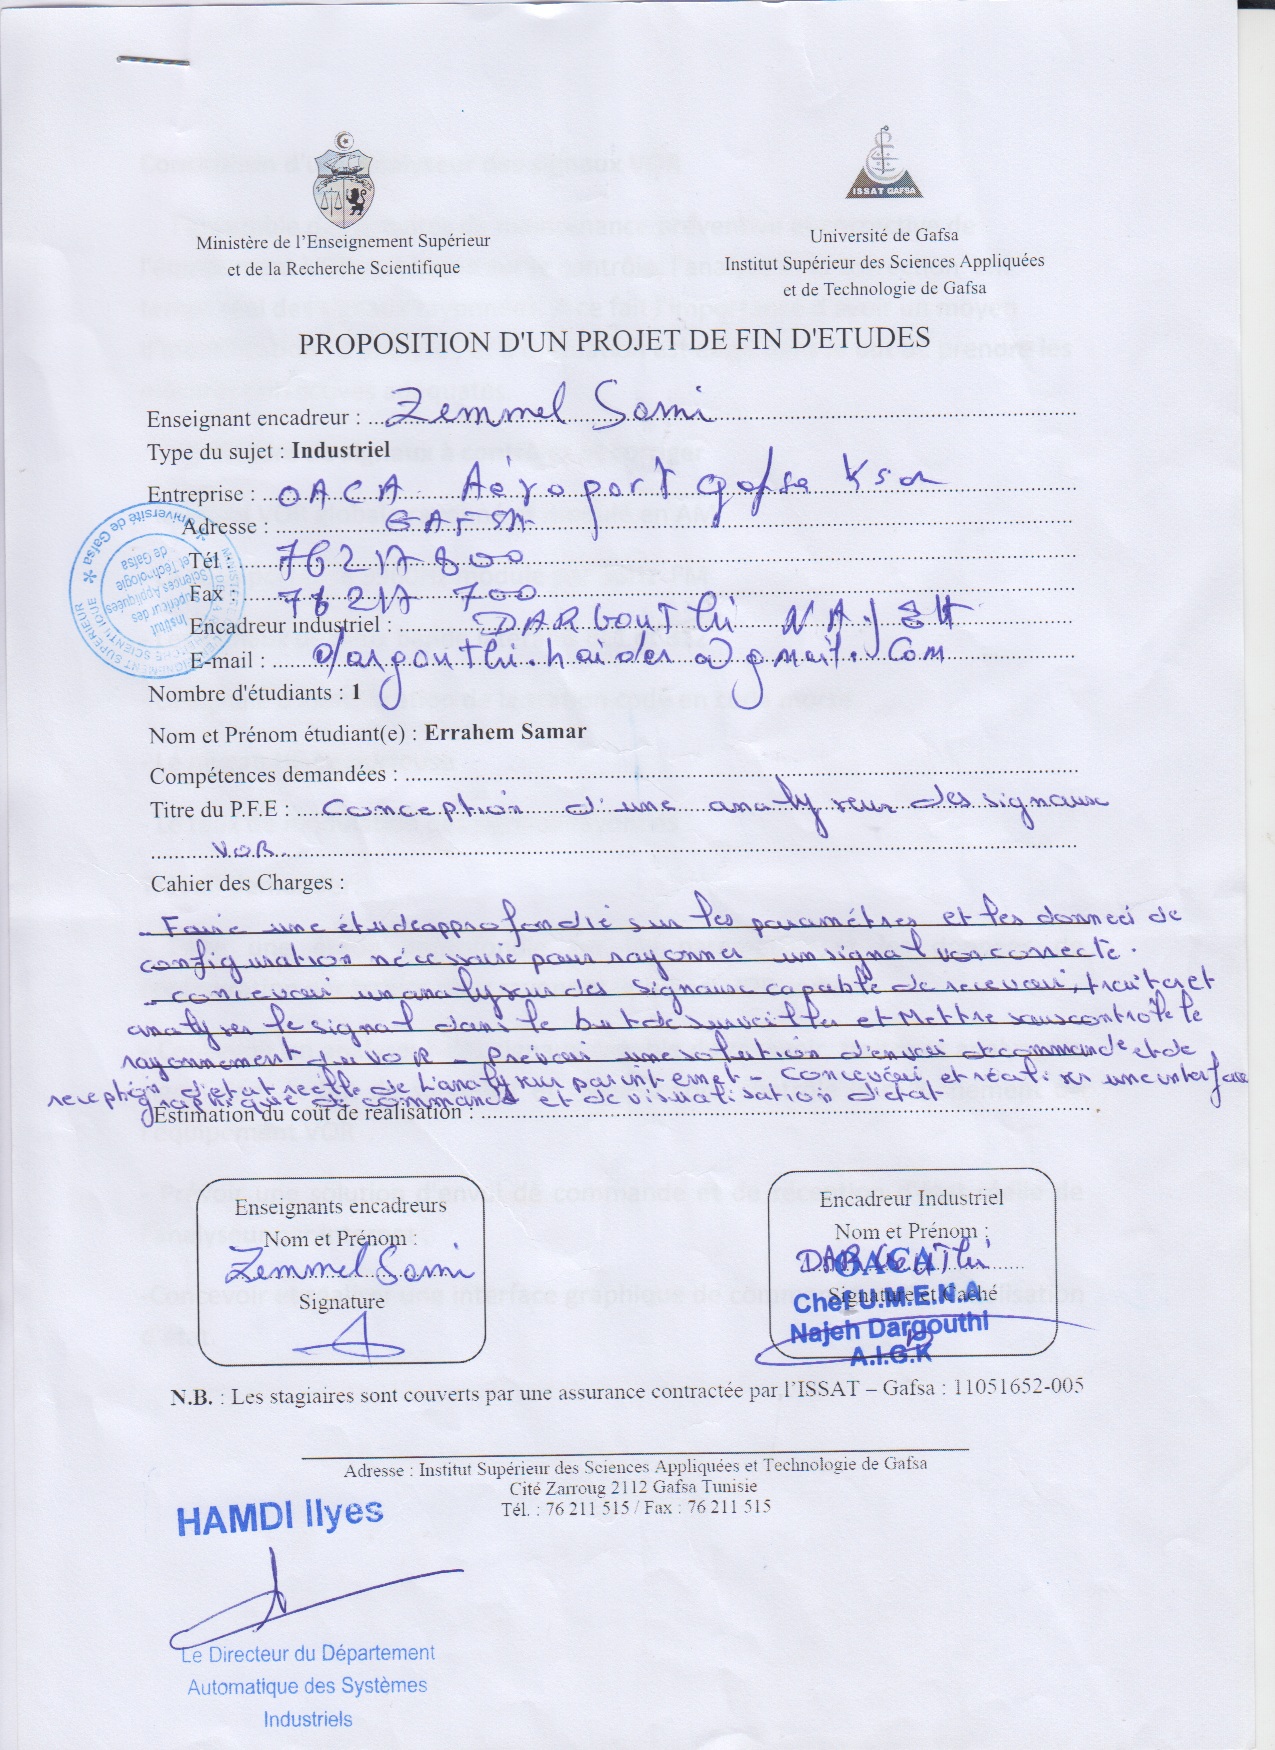 ISSAT GAFSA
Ministère de l'Enseignement Supérieur
et de la Recherche Scientifique
Université de Gafsa
Institut Supérieur des Sciences Appliquées
et de Technologie de Gafsa
PROPOSITION D'UN PROJET DE FIN D'ETUDES
Enseignant encadreur : Zemmel Sami
Type du sujet : Industriel
Entreprise : OACA Aéroport Gafsa Ksar
Adresse : GAFSA
Tél : 76 217 800
Fax : 76 217 700
Encadreur industriel : DARGOUTHI NAJEH
E-mail : dargouthi.haider@gmail.com
Nombre d'étudiants : 1
Nom et Prénom étudiant(e) : Errahem Samar
Compétences demandées :
Titre du P.F.E : Conception d'une analyseur des signaux
VOR.
Cahier des Charges :
- Faire une étude approfondie sur les paramétres et les données de
configuration nécessaire pour rayonner un signal vor correcte.
- concevoir un analyseur des signaux capable de recevoir, traiter et
analyser le signal dans le but de surveiller et Mettre sous controle le
rayonnement du VOR - Prévoir une solution d'envoi de commande et de
reception d'etat réelle de l'analyseur par internet - Concevoir et réaliser une interface
graphique de commande et de visualisation d'etat
Estimation du coût de réalisation :
Enseignants encadreurs
Nom et Prénom :
Zemmel Sami
Signature
Encadreur Industriel
Nom et Prénom :
DARGOUTHI
OACA
Signature et Caché
Chef U.M.E.N.A
Najeh Dargouthi
A.I.G.K
N.B. : Les stagiaires sont couverts par une assurance contractée par l'ISSAT – Gafsa : 11051652-005
Adresse : Institut Supérieur des Sciences Appliquées et Technologie de Gafsa
Cité Zarroug 2112 Gafsa Tunisie
Tél. : 76 211 515 / Fax : 76 211 515
HAMDI Ilyes
Le Directeur du Département
Automatique des Systèmes
Industriels